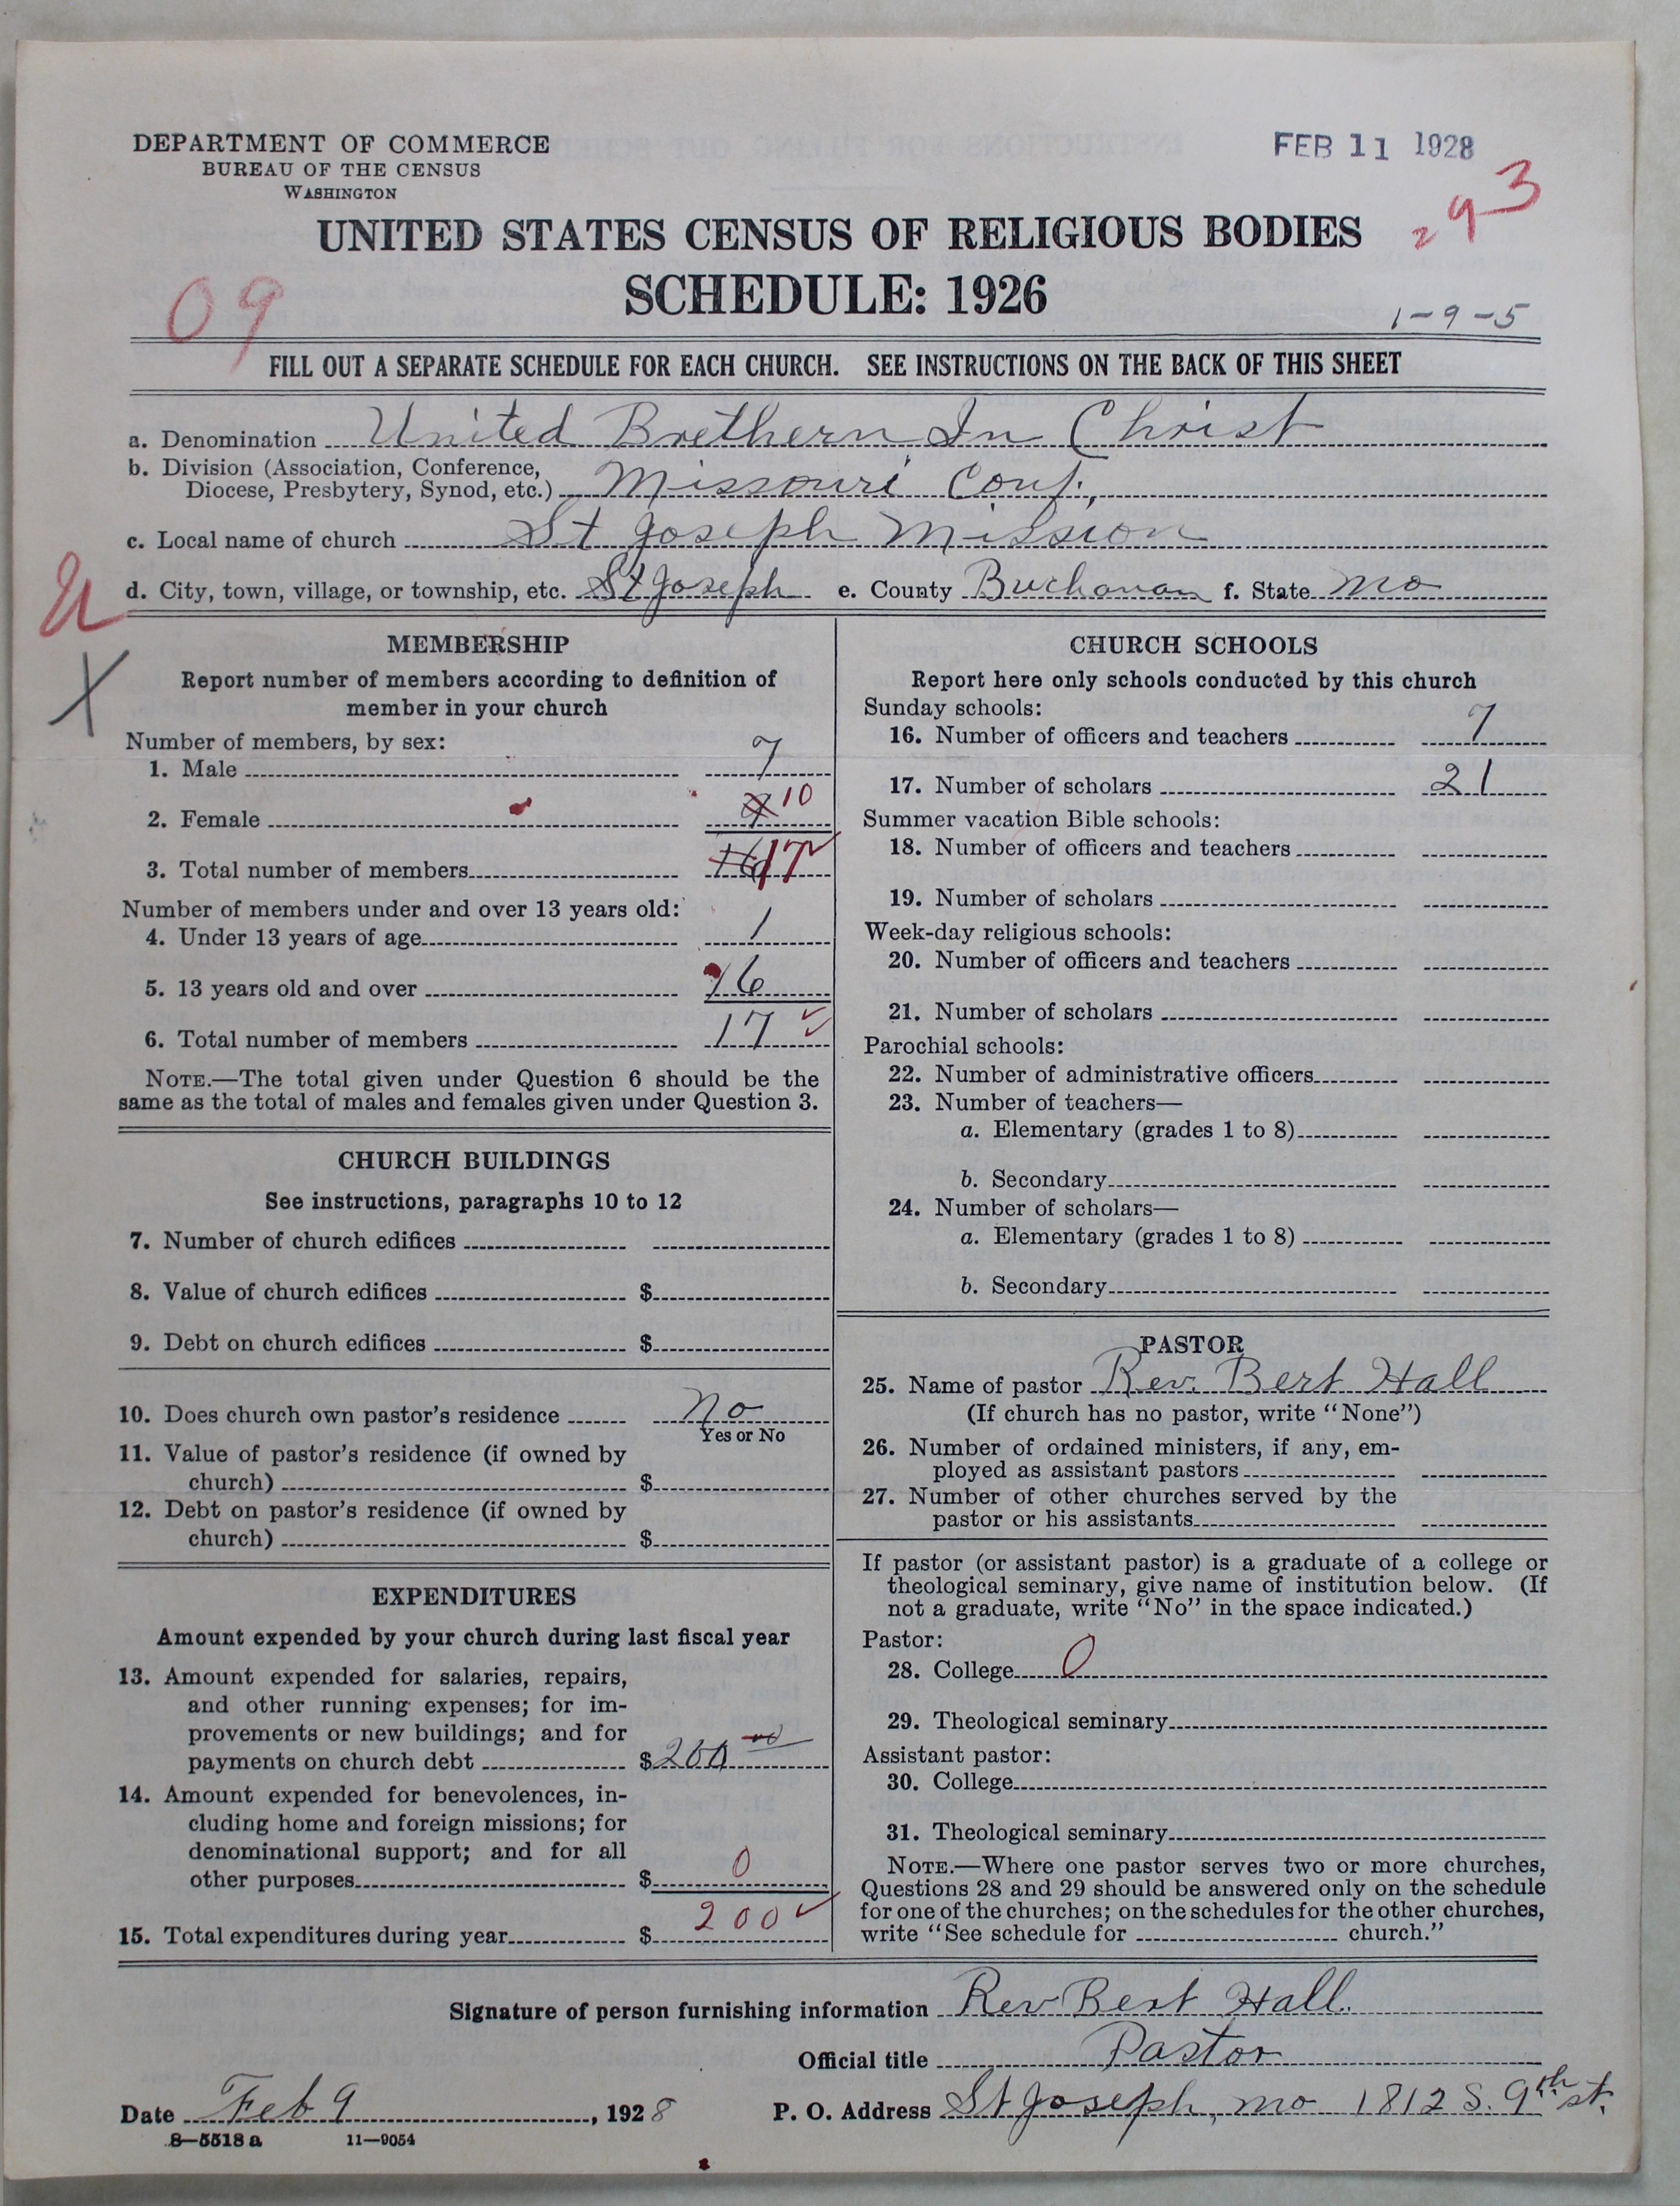 DEPARTMENT OF COMMERCE
BUREAU OF THE CENSUS
WASHINGTON
FEB 11 1928
293
UNITED STATES CENSUS OF RELIGIOUS BODIES
SCHEDULE: 1926
09
1-9-5
FILL OUT A SEPARATE SCHEDULE FOR EACH CHURCH. SEE INSTRUCTIONS ON THE BACK OF THIS SHEET
a. Denomination United Brethern In Christ
b. Division (Association, Conference,
Diocese, Presbytery, Synod, etc.) Missouri Conf.,
c. Local name of church St Joseph Mission
d. City, town, village, or township, etc. St Joseph e. County Buchanan f. State Mo
X
MEMBERSHIP
Report number of members according to definition of
member in your church
Number of members, by sex:
1. Male 7
2. Female 10
3. Total number of members 17
Number of members under and over 13 years old:
4. Under 13 years of age 1
5. 13 years old and over 16
6. Total number of members 17
NOTE.—The total given under Question 6 should be the
same as the total of males and females given under Question 3.
CHURCH BUILDINGS
See instructions, paragraphs 10 to 12
7. Number of church edifices
8. Value of church edifices $
9. Debt on church edifices $
10. Does church own pastor's residence No
Yes or No
11. Value of pastor's residence (if owned by
church) $
12. Debt on pastor's residence (if owned by
church) $
EXPENDITURES
Amount expended by your church during last fiscal year
13. Amount expended for salaries, repairs,
and other running expenses; for im-
provements or new buildings; and for
payments on church debt $200 00
14. Amount expended for benevolences, in-
cluding home and foreign missions; for
denominational support; and for all
other purposes $ 0
15. Total expenditures during year $ 200
CHURCH SCHOOLS
Report here only schools conducted by this church
Sunday schools:
16. Number of officers and teachers 7
17. Number of scholars 21
Summer vacation Bible schools:
18. Number of officers and teachers
19. Number of scholars
Week-day religious schools:
20. Number of officers and teachers
21. Number of scholars
Parochial schools:
22. Number of administrative officers
23. Number of teachers—
a. Elementary (grades 1 to 8)
b. Secondary
24. Number of scholars—
a. Elementary (grades 1 to 8)
b. Secondary
PASTOR
25. Name of pastor Rev. Bert Hall
(If church has no pastor, write "None")
26. Number of ordained ministers, if any, em-
ployed as assistant pastors
27. Number of other churches served by the
pastor or his assistants
If pastor (or assistant pastor) is a graduate of a college or
theological seminary, give name of institution below. (If
not a graduate, write "No" in the space indicated.)
Pastor:
28. College 0
29. Theological seminary
Assistant pastor:
30. College
31. Theological seminary
NOTE.—Where one pastor serves two or more churches,
Questions 28 and 29 should be answered only on the schedule
for one of the churches; on the schedules for the other churches,
write "See schedule for church."
Signature of person furnishing information Rev Bert Hall.
Official title Pastor
Date Feb 9, 1928 P. O. Address St Joseph, Mo 1812 S. 9th st.
8—5518 a 11—9054